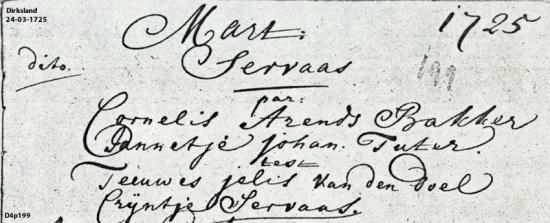 Dirksland
24-03-1725
Mart: 1725
dito. Servaas
199
par:
Cornelis Arends Bakker
Pannetje Johan. Tuter.
test
Teeuwes jelis van den Doel
Crijntje Servaas.
D4p199